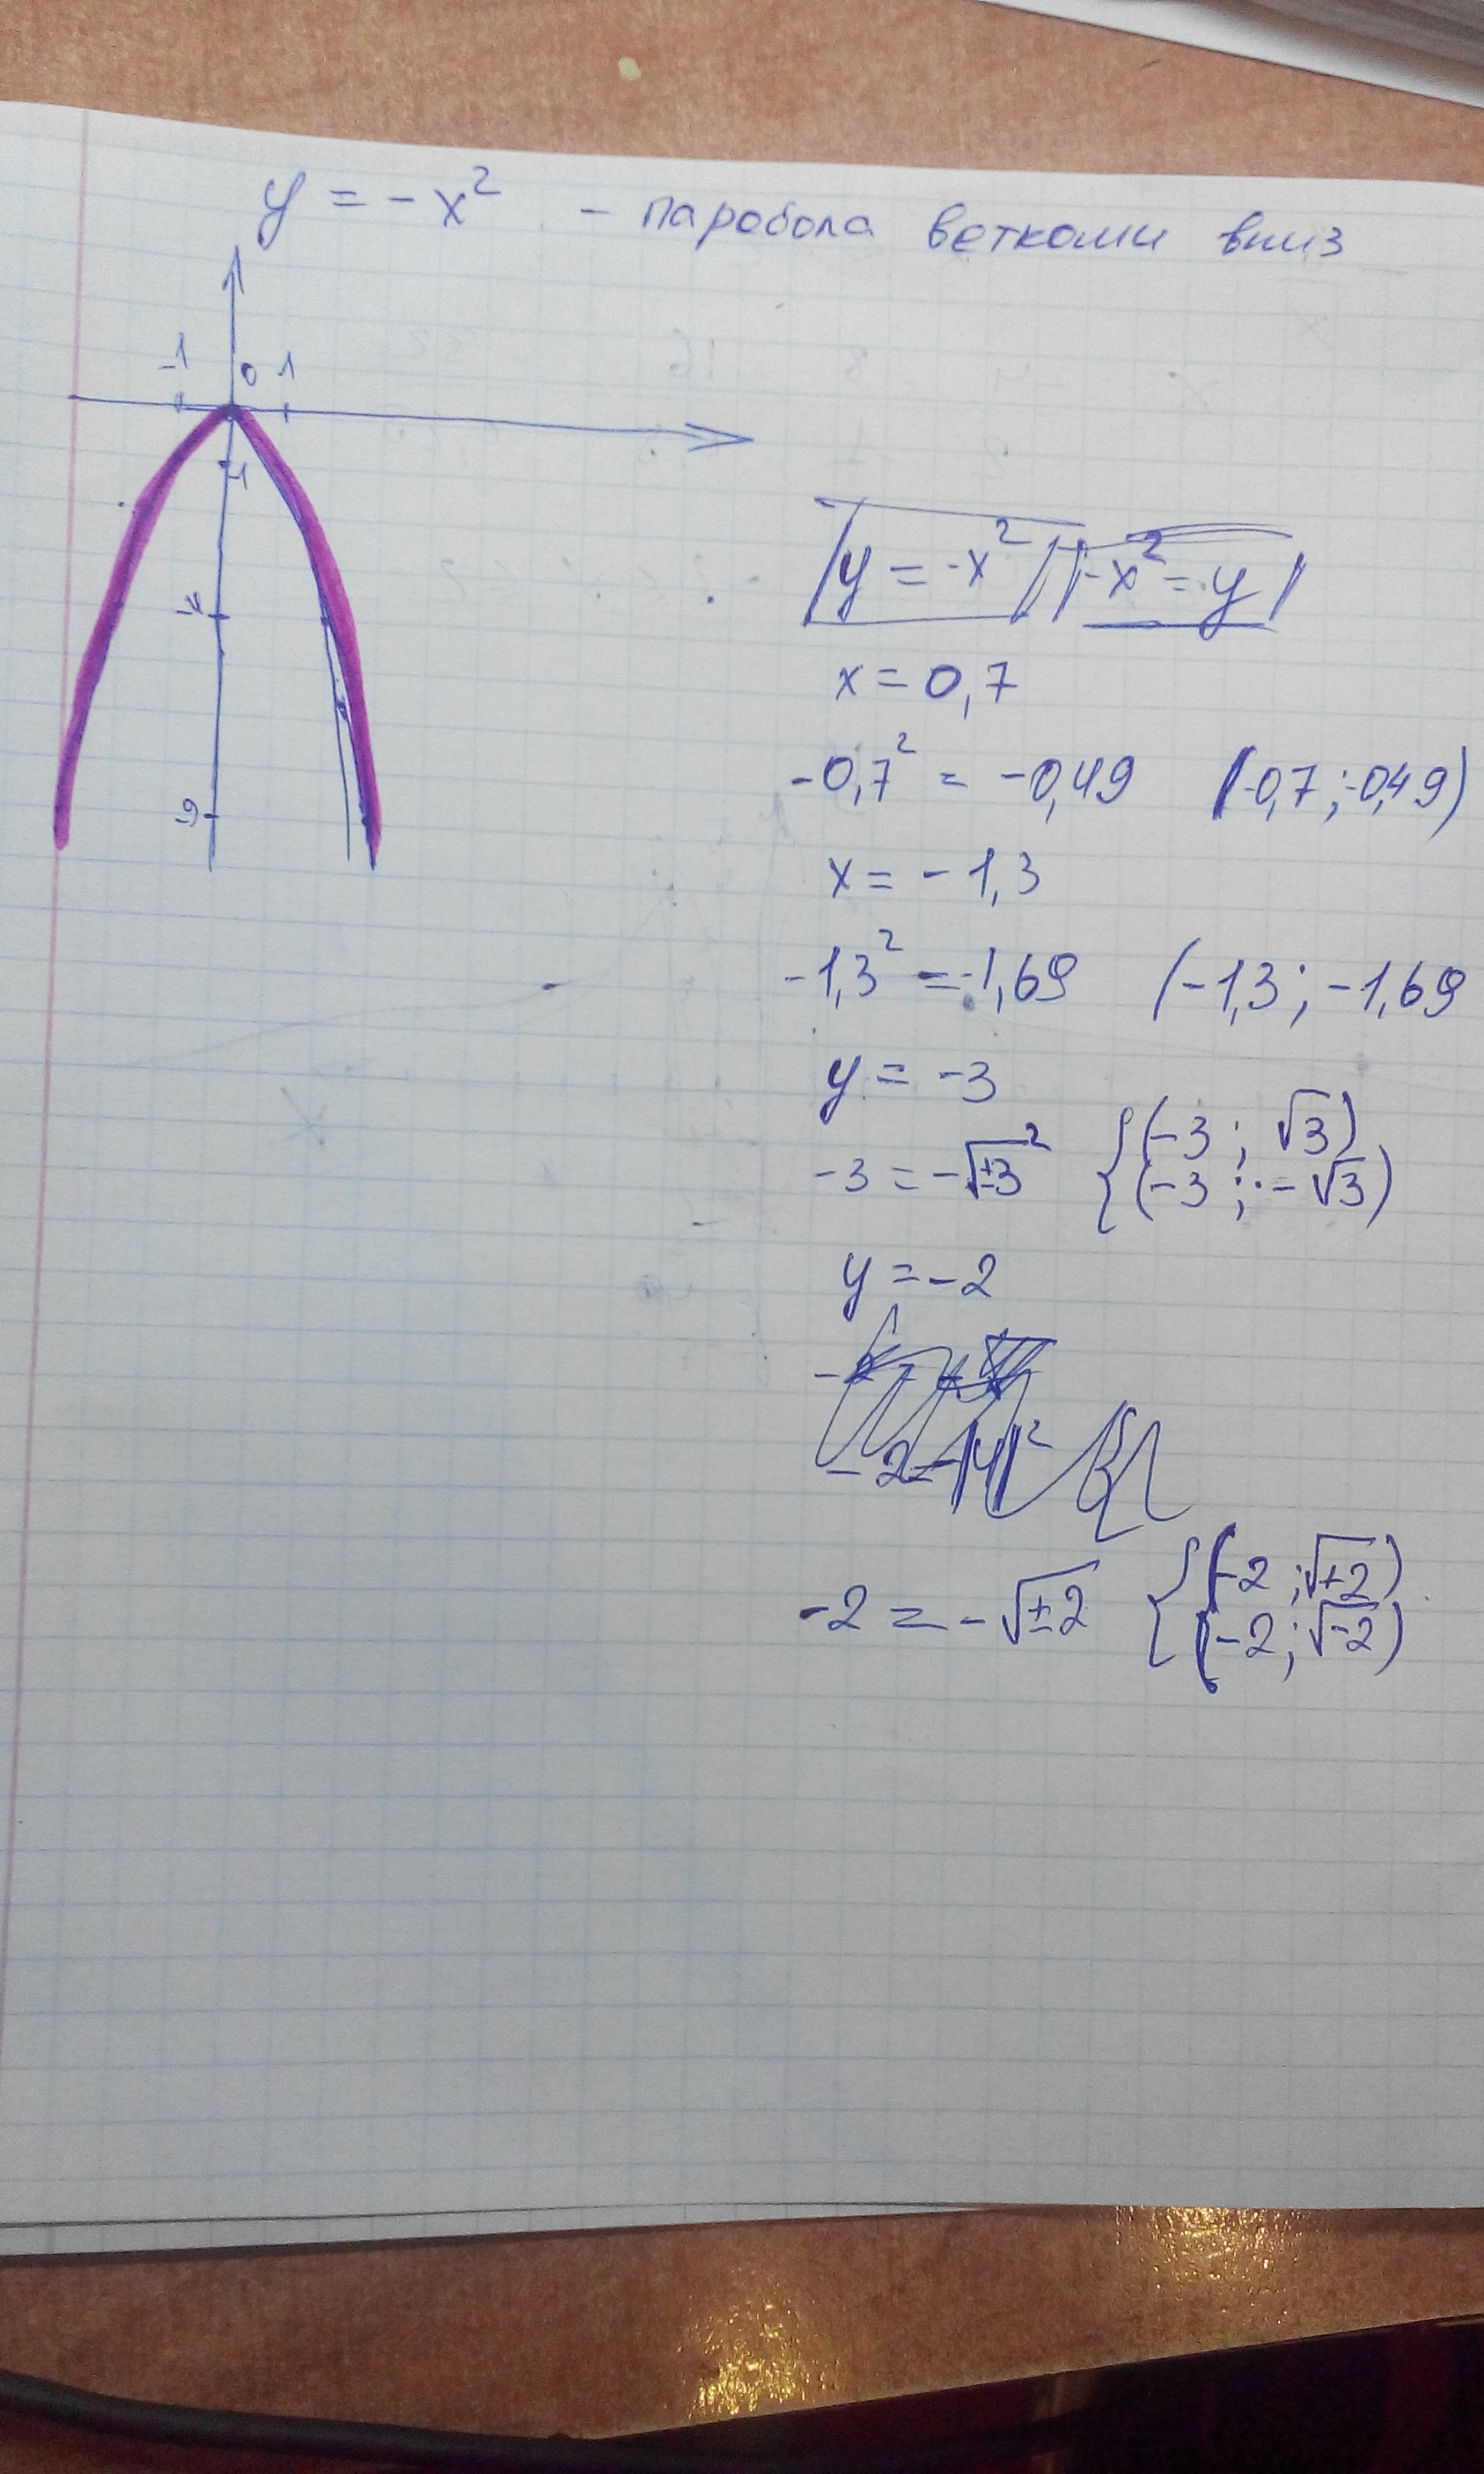 y = -x² - паробола ветками вниз
-1 0 1
-1
-4
-9
y = -x² -x² = y
x = 0,7
-0,7² = -0,49 (-0,7 ; -0,49)
x = -1,3
-1,3² = -1,69 (-1,3 ; -1,69
y = -3
-3 = -√±3² { (-3 ; √3)
(-3 ; -√3)
y = -2
-2 = -√±2 { (-2 ; √+2)
(-2 ; √-2)